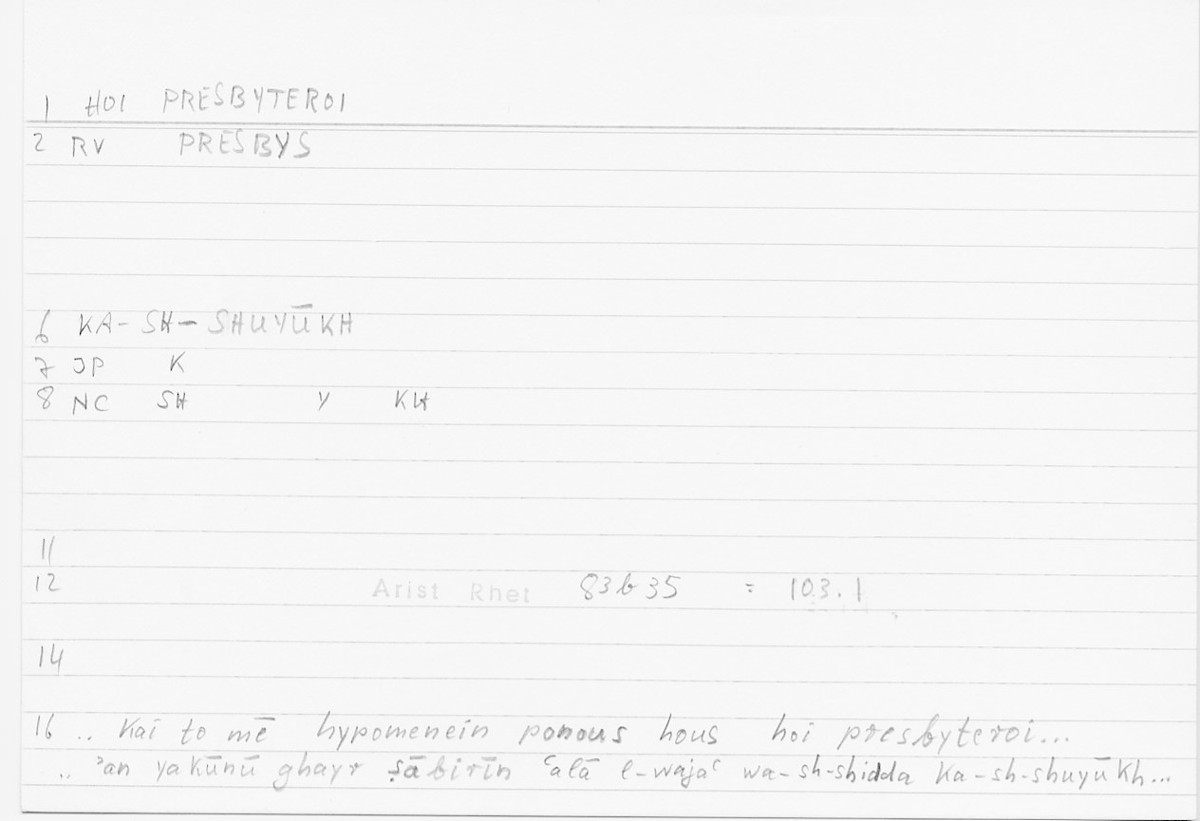 1 HOI PRESBYTEROI
2 RV PRESBYS
6 KA-SH-SHUYŪKH
7 JP K
8 NC SH Y KH
11
12 Arist Rhet 83b35 = 103.1
14
16 .. Kai to mē hypomenein ponous hous hoi presbyteroi...
.. ʾan yakūnū ghayr ṣābirīn ʿalā l-wajaʿ wa-sh-shidda ka-sh-shuyūkh...